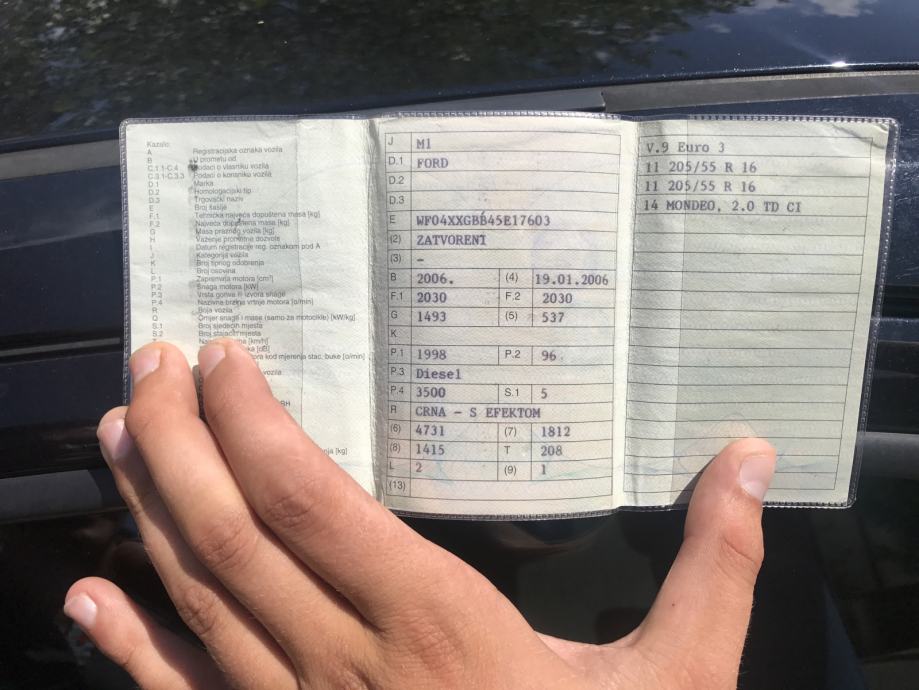 Kazalo:
A Registracijska oznaka vozila
B U prometu od
C.1.1-C.4 Podaci o vlasniku vozila
C.3.1-C.3.3 Podaci o korisniku vozila
D.1 Marka
D.2 Homologacijski tip
D.3 Trgovački naziv
E Broj šasije
F.1 Tehnička najveća dopuštena masa [kg]
F.2 Najveća dopuštena masa [kg]
G Masa praznog vozila [kg]
H Važenje prometne dozvole
I Datum registracije reg. oznakom pod A
J Kategorija vozila
K Broj tipnog odobrenja
L Broj osovina
P.1 Zapremina motora [cm³]
P.2 Snaga motora [kW]
P.3 Vrsta goriva ili izvora snage
P.4 Nazivna brzina vrtnje motora [o/min]
R Boja vozila
Q Omjer snage i mase (samo za motocikle) [kW/kg]
S.1 Broj sjedećih mjesta
S.2 Broj stajaćih mjesta
[km/h]
[dB]
kod mjerenja stac. buke [o/min]
vozila
BH
[kg]
J M1
D.1 FORD
D.2
D.3
E WF04XXGBB45E17603
(2) ZATVORENI
(3) -
B 2006. (4) 19.01.2006
F.1 2030 F.2 2030
G 1493 (5) 537
K
P.1 1998 P.2 96
P.3 Diesel
P.4 3500 S.1 5
R CRNA - S EFEKTOM
(6) 4731 (7) 1812
(8) 1415 T 208
L 2 (9) 1
(13)
V.9 Euro 3
11 205/55 R 16
11 205/55 R 16
14 MONDEO, 2.0 TD CI